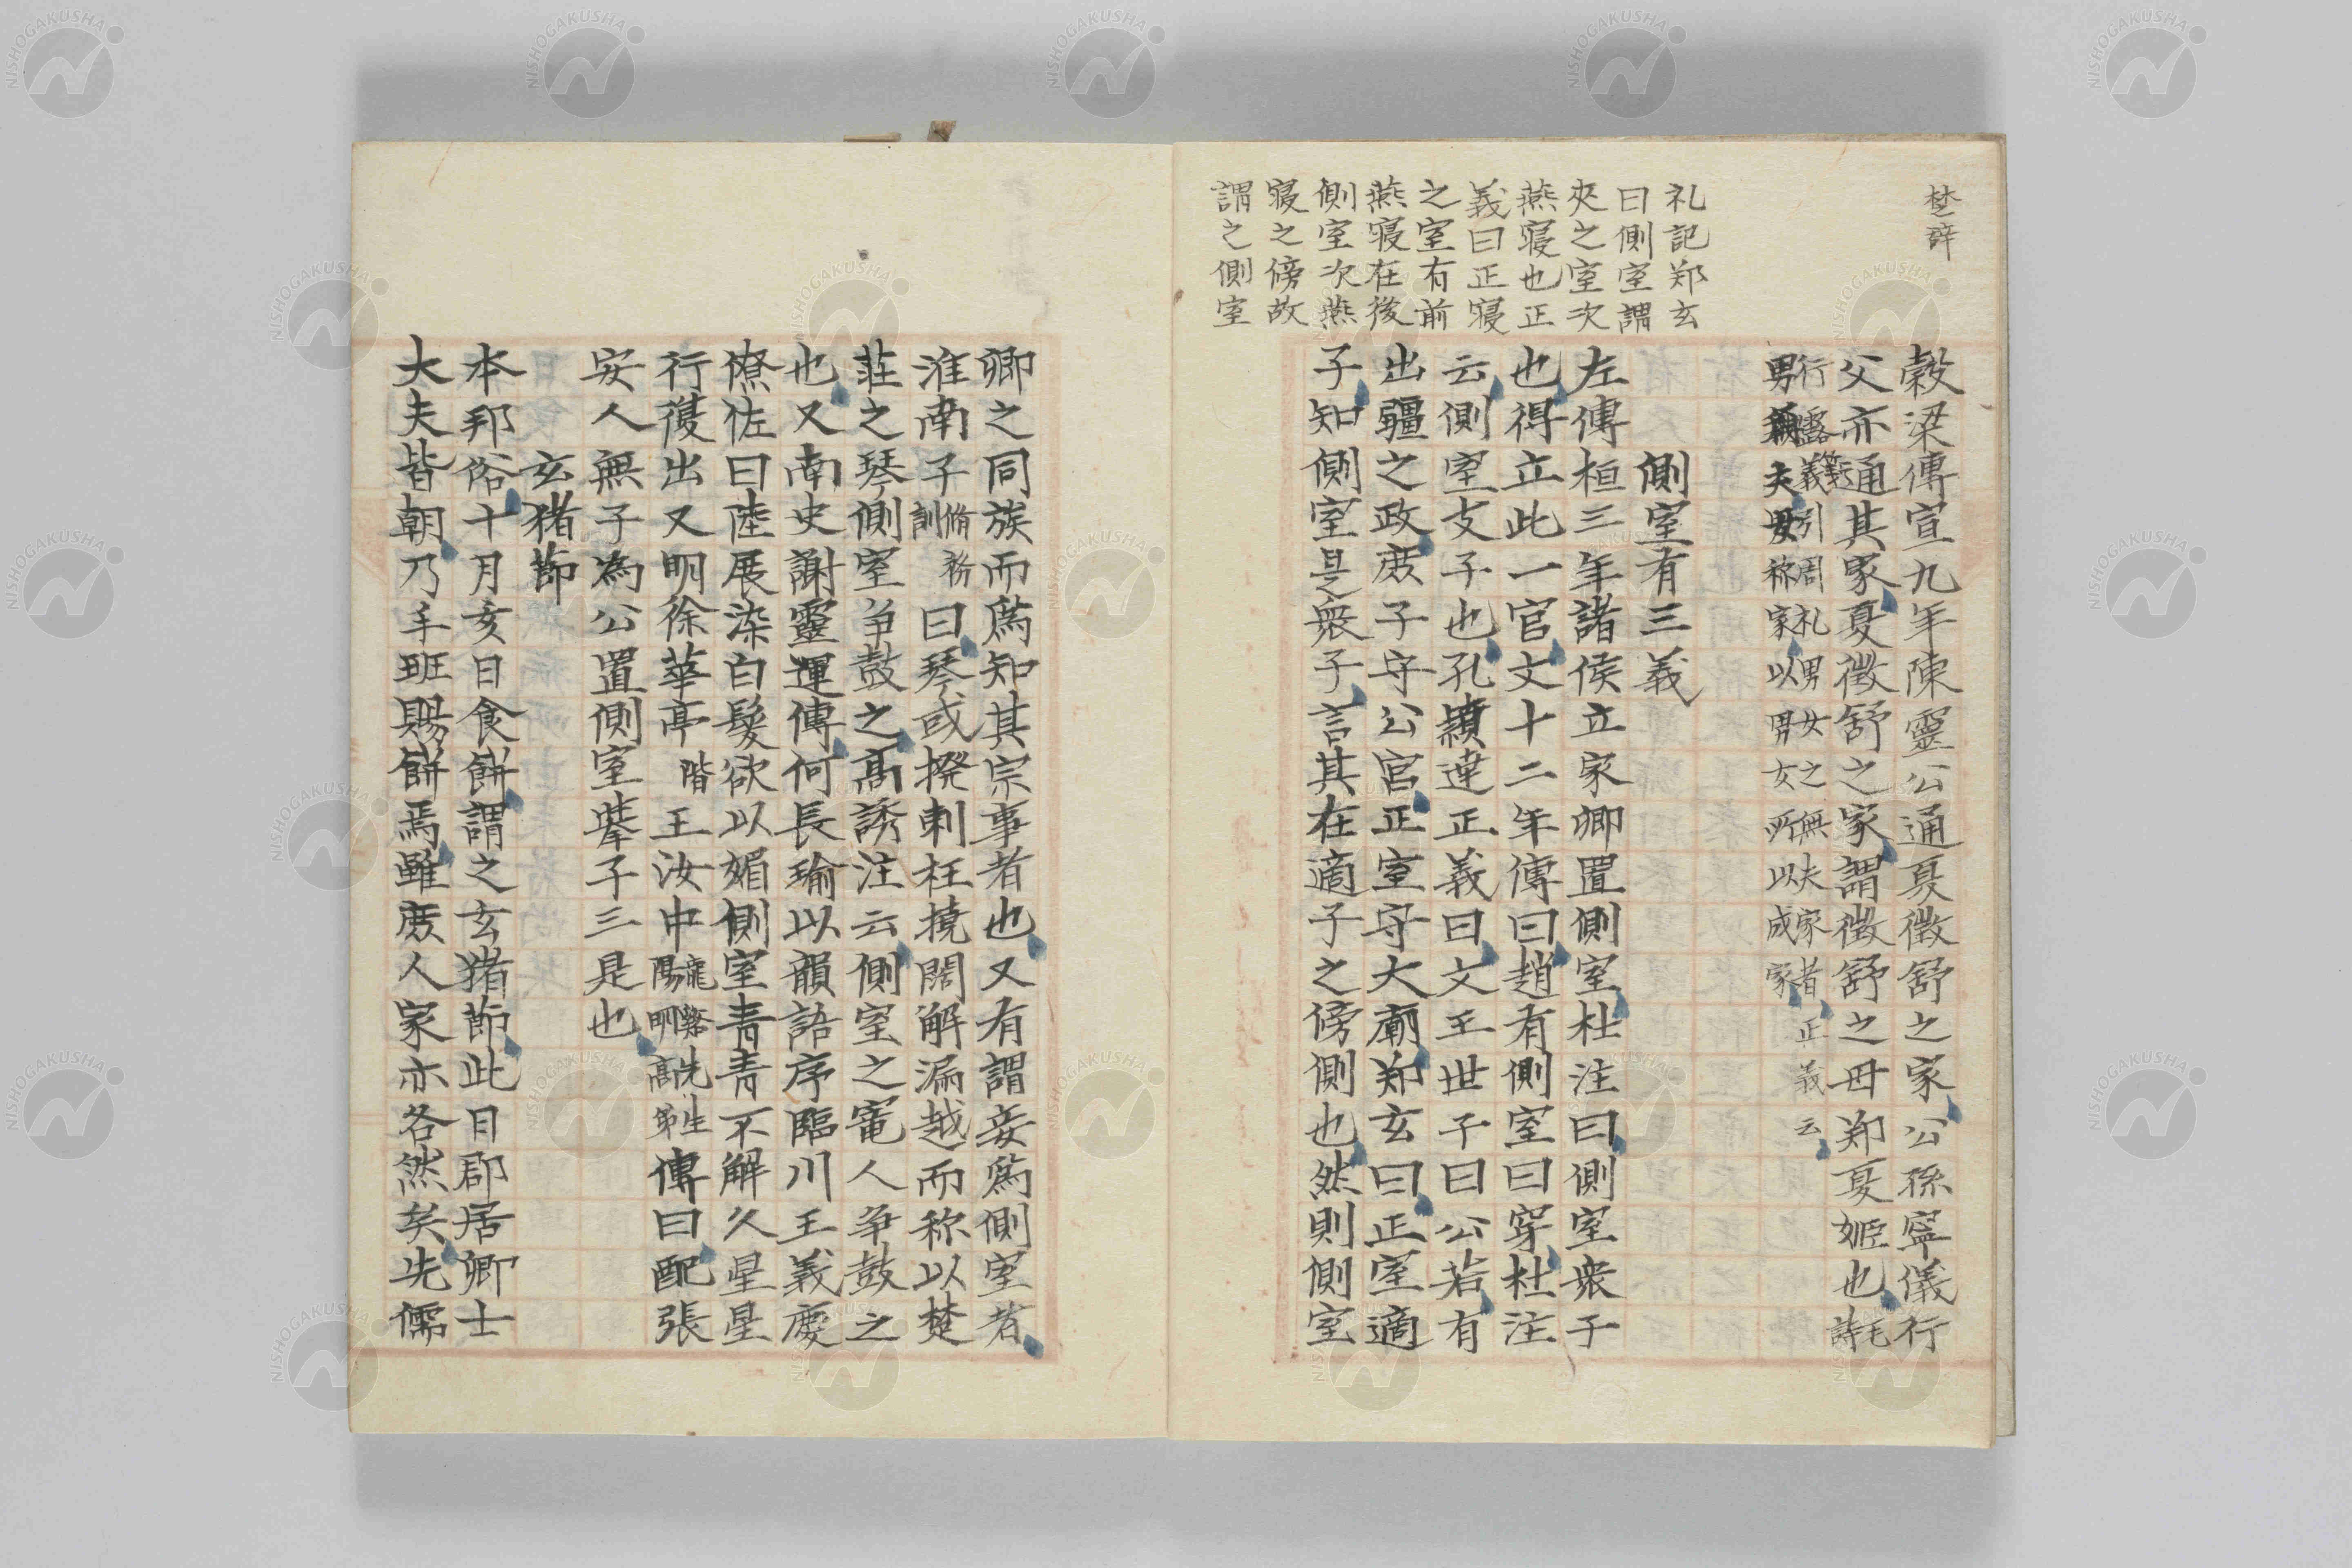 楚辞
穀梁傳宣九年陳靈公通夏徵舒之家公孫寧儀行
父亦通其家夏徵舒之家謂徵舒之母郑夏姬也毛
詩
行露箋義引周礼男女之無夫家者正義云
男為夫婦称家以男女所以成家
側室有三義
礼記郑玄
曰側室謂
夾之室次
燕寝也正
義曰正寝
之室有前
燕寝在後
側室次燕
寝之傍故
謂之側室
左傳桓三年諸侯立家卿置側室杜注曰側室衆子
也得立此一官文十二年傳曰趙有側室曰穿杜注
云側室支子也孔穎達正義曰文王世子曰公若有
出疆之政庶子守公宮正室守大廟郑玄曰正室適
子知側室是衆子言其在適子之傍側也然則側室
卿之同族而爲知其宗事者也又有謂妾爲側室者
淮南子脩務
訓曰琴或撥剌枉撓闊解漏越而称以楚
莊之琴側室争鼓之高誘注云側室之寵人争鼓之
也又南史謝靈運傳何長瑜以韻語序臨川王義慶
僚佐曰陸展染白髮欲以媚側室青青不解久星星
行復出又明徐華亭階王汝中龍谿先生
陽明高弟傳曰配張
安人無子為公置側室擧子三是也
玄猪節
本邦俗十月亥日食餅謂之玄猪節此日郡居卿士
大夫皆朝乃手班賜餅焉雖庶人家亦各然矣先儒
NISHOGAKUSHA